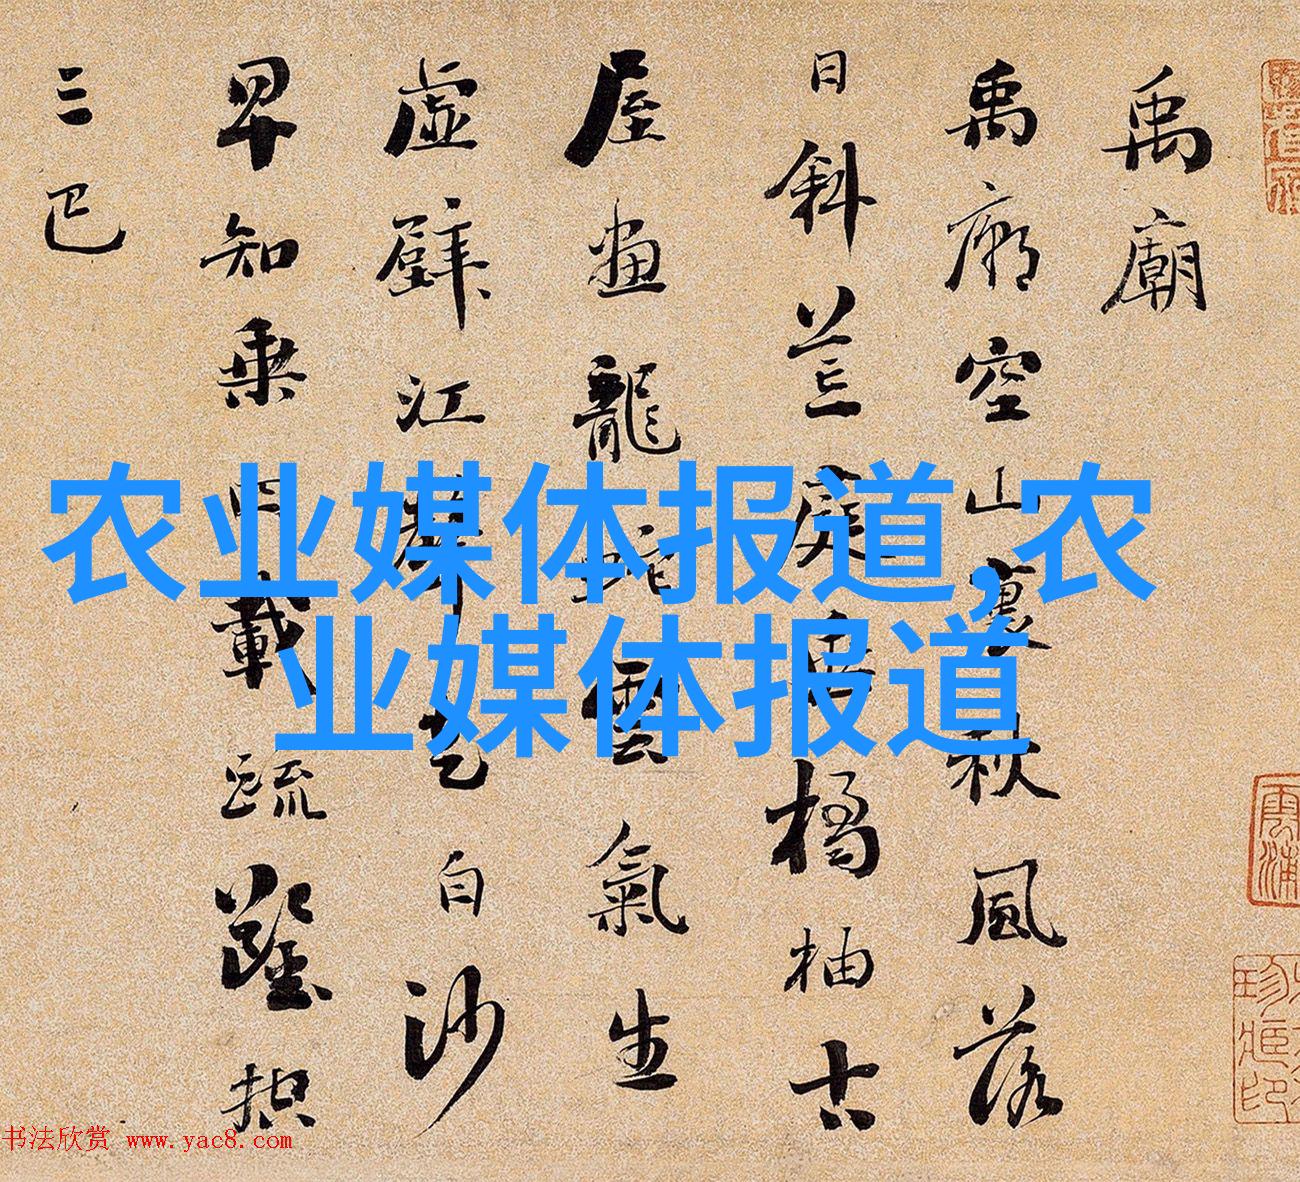 禹廟
禹廟空山裏秋風落
日斜荒庭垂橘柚古
屋畫龍蛇雲氣生
虛壁江聲走白沙
早知乘四載疏鑿控
三巴
农业媒体报道,农
业媒体报道
书法欣赏 www.yac8.com